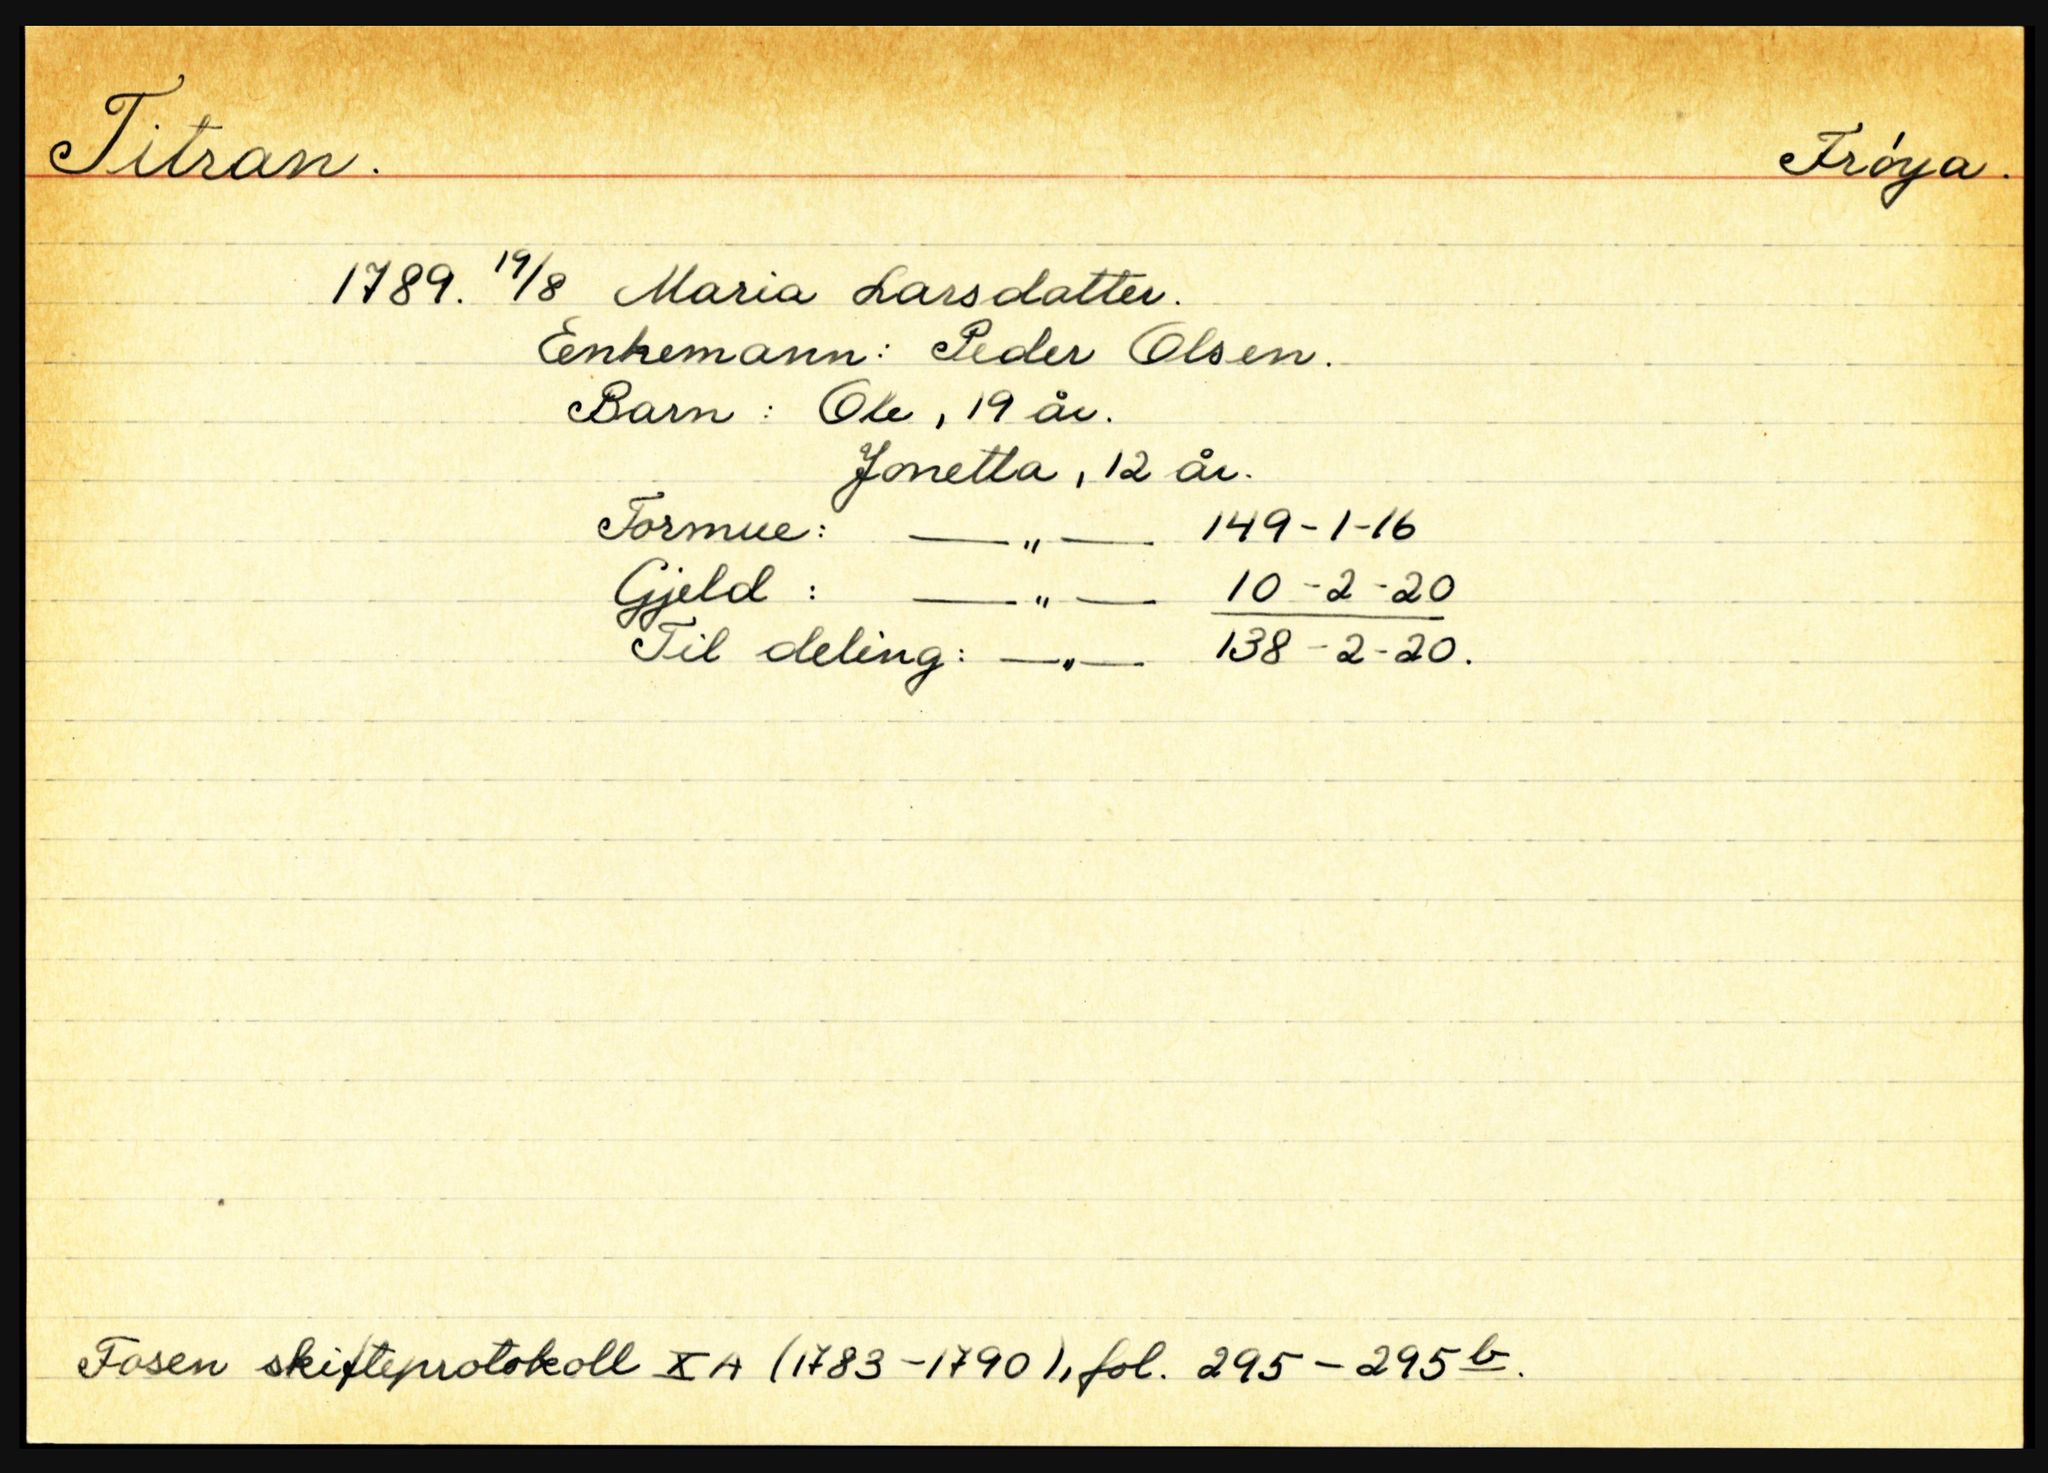 Titran. Frøya.
1789. 19/8 Maria Larsdatter.
Enkemann: Peder Olsen.
Barn: Ole, 19 år.
Jonetta, 12 år.
Formue: —"— 149-1-16
Gjeld: —"— 10-2-20
Til deling: —"— 138-2-20.
Fosen skifteprotokoll X A (1783-1790), fol. 295-295b.